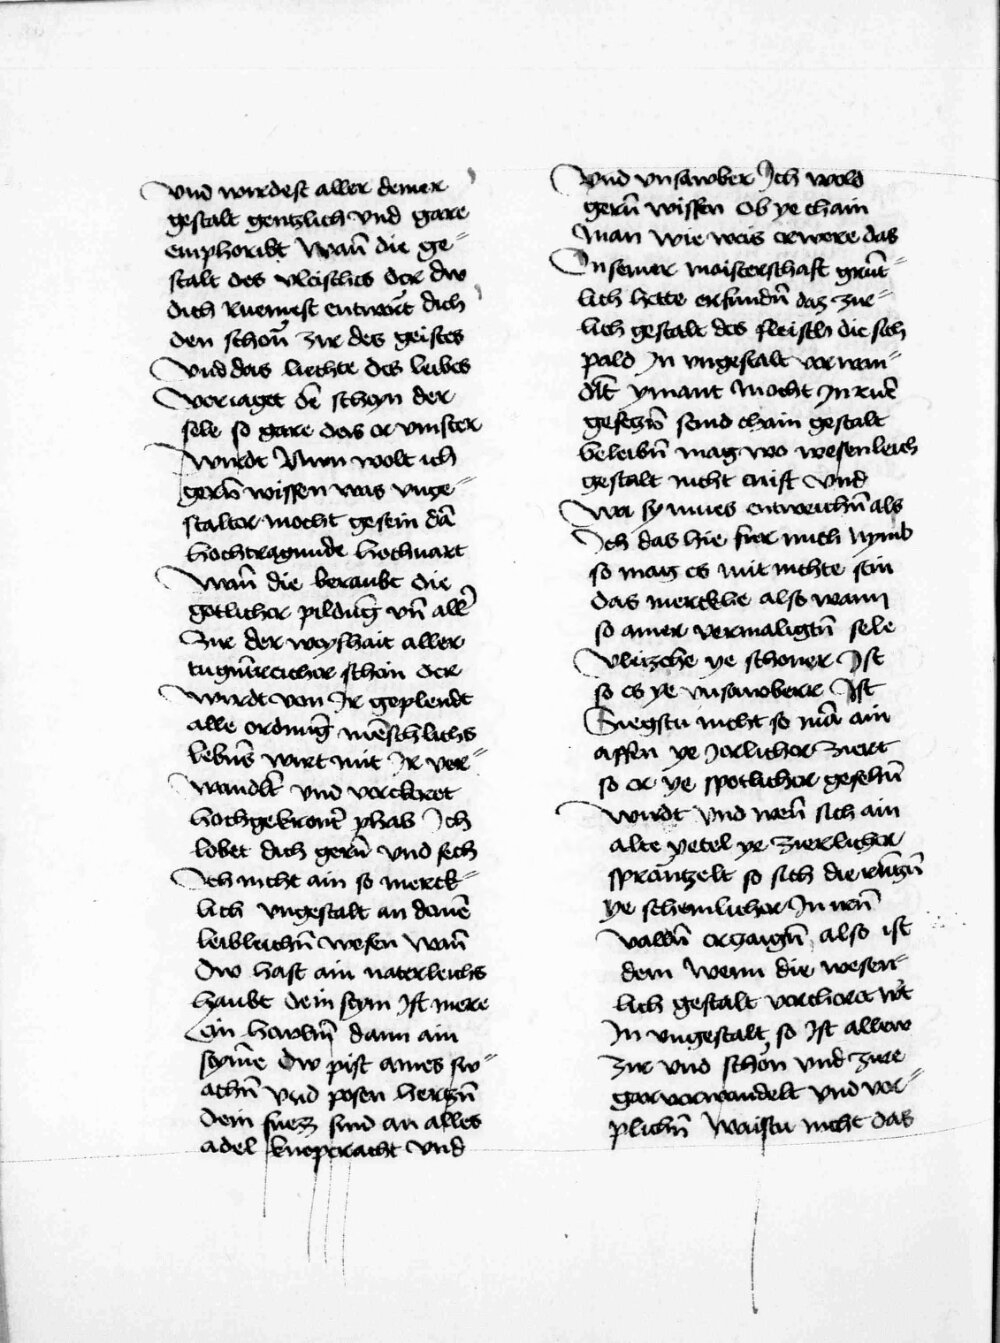 vnd wirdest aller deiner
gestalt gentzlich vnd gare
emphoribt Wan̄ die ge=
stalt des vleisches der dw
dich Ruemest entwort dich
den schon̄ zir des geistes
Vnd das liechte des leibes
Veriaget de schein der
sele so gare das er vinster
wirdt Nun wolt ich
gern̄ wissen was vnge=
stalter mocht gesein dan̄
hochtragunde hochuart
Wan̄ die beraubt die
gotlicher pildung vn̄ all
Zir der weyshait aller
tugentreicher schein der
wirdt von Ir geplendt
alle ordnung menschlichs
lebens wirt mit Ir ver=
wandlt vnd verkeret
hochgekront phab Ich
lobet dich gern̄ vnd sech
Ich nicht ain so merck=
lich vngestalt an deinē
leibleichn̄ wesen Wan̄
Dw hast ain naterleichs
haubt dein stym Ist mere
Ein hewln̄ dann ain
stym̄e Dw pist aines sw=
achn̄ vnd posen herczn̄
Dein fuez sind an alles
adel knopcracht vnd
Vnd vnsawber Ich wold
gern̄ wissen Ob ye chain
Man wie weis er were das
In seiner maisterschaft grunt=
lich hette erfundn̄ daz zir=
lich gestalt des fleisch die sich
pald In vngestalt verwan=
dlt ymant Mocht In rue
geseczn̄ seind chain gestalt
beleibn̄ mag wo wesenleich
gestalt nicht enist Vnd
Wa sy mues entweichn̄ als
Ich das hie fuer mich Nymb
so mag es mit nichte sein
das merckhe also wann
so ainer vermaligtn̄ sele
Vleische ye schoner Ist
so es ye vnsawberr Ist
Siegstu nicht so ma ain
affen ye zerlicher Ziert
so er ye spotlicher gesehn̄
wirdt Vnd wen̄ sich ain
alte vetel ye zierlicher
sprantzelt so sich die runczn̄
ye schemlicher In irn̄
valdn̄ erzaign̄ also ist
dem Wenn die wesen=
lich gestalt verchert wt
In vngestalt so Ist allew
Zir vnd schon vnd ziere
gar verwandelt vnd ver=
plichn̄ Waistu nicht das